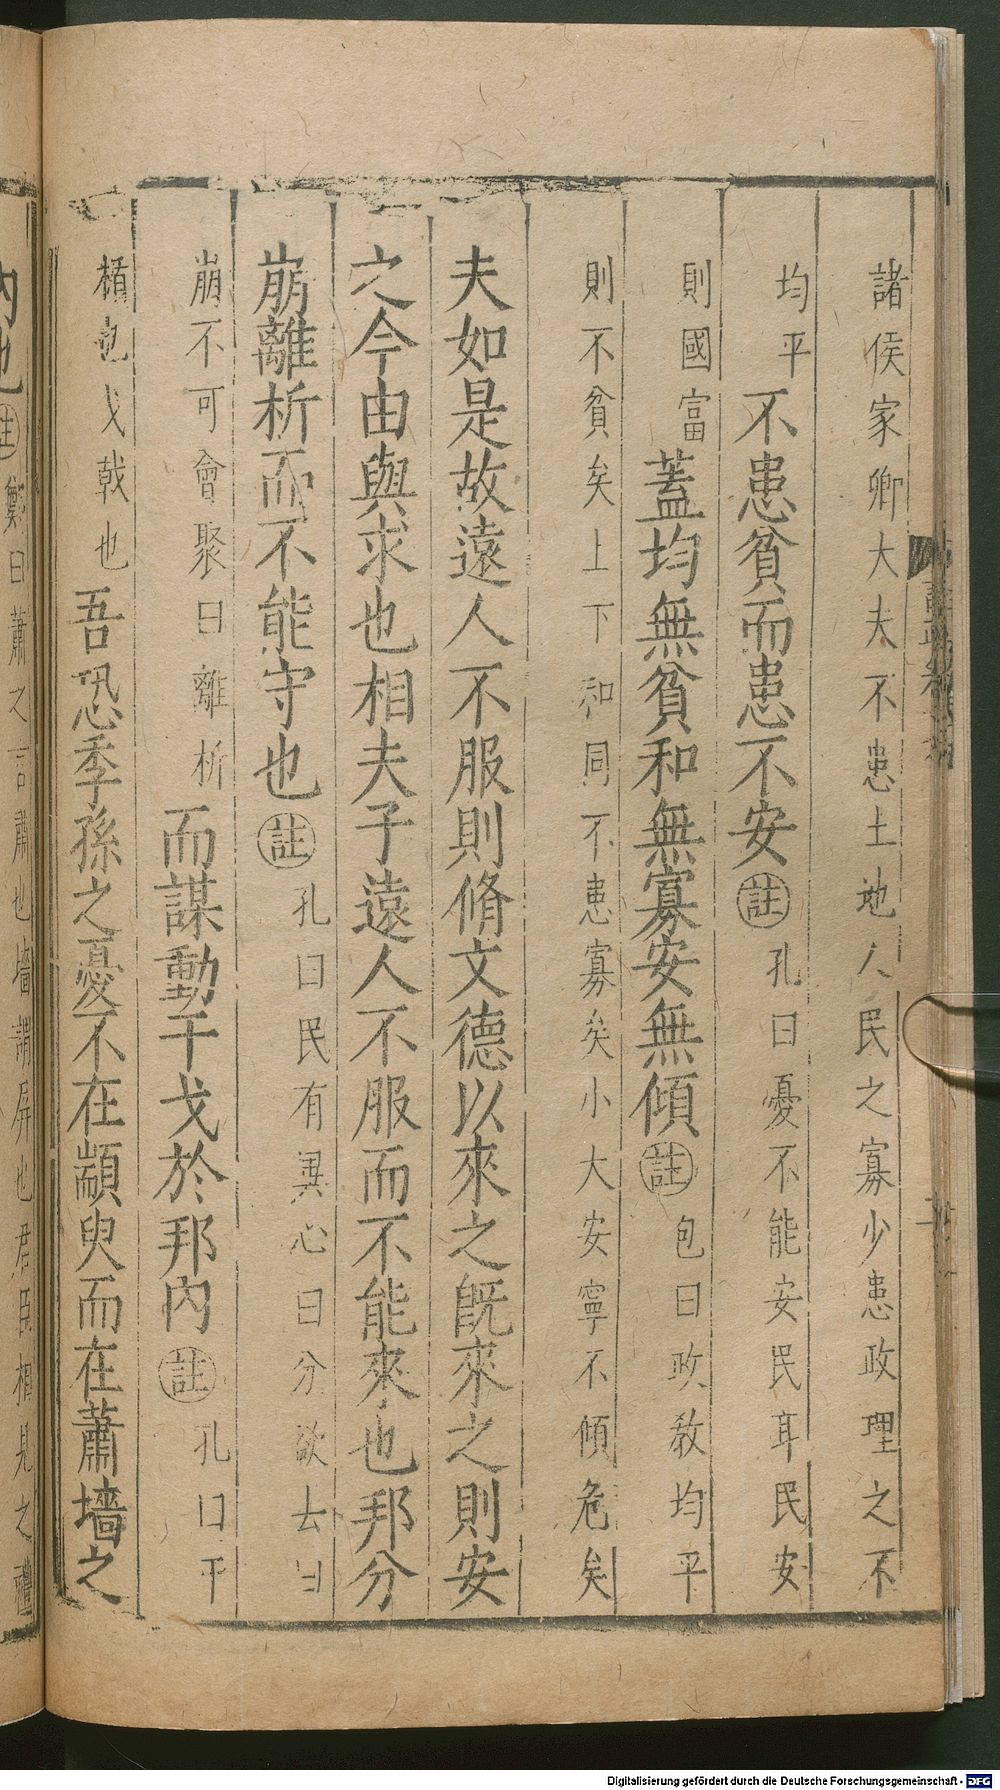 諸侯家卿大夫不患土地人民之寡少患政理之不
均平不患貧而患不安註孔曰憂不能安民耳民安
則國富蓋均無貧和無寡安無傾註包曰政教均平
則不貧矣上下和同不患寡矣小大安寧不傾危矣
夫如是故遠人不服則脩文德以來之旣來之則安
之今由與求也相夫子遠人不服而不能來也邦分
崩離析而不能守也註孔曰民有異心曰分欲去曰
崩不可會聚曰離析而謀動干戈於邦內註孔曰干
楯也戈戟也吾恐季孫之憂不在顓臾而在蕭墻之
內也註鄭曰蕭之言肅也墻謂屏也君臣相見之禮
Digitalisierung gefördert durch die Deutsche Forschungsgemeinschaft - DFG